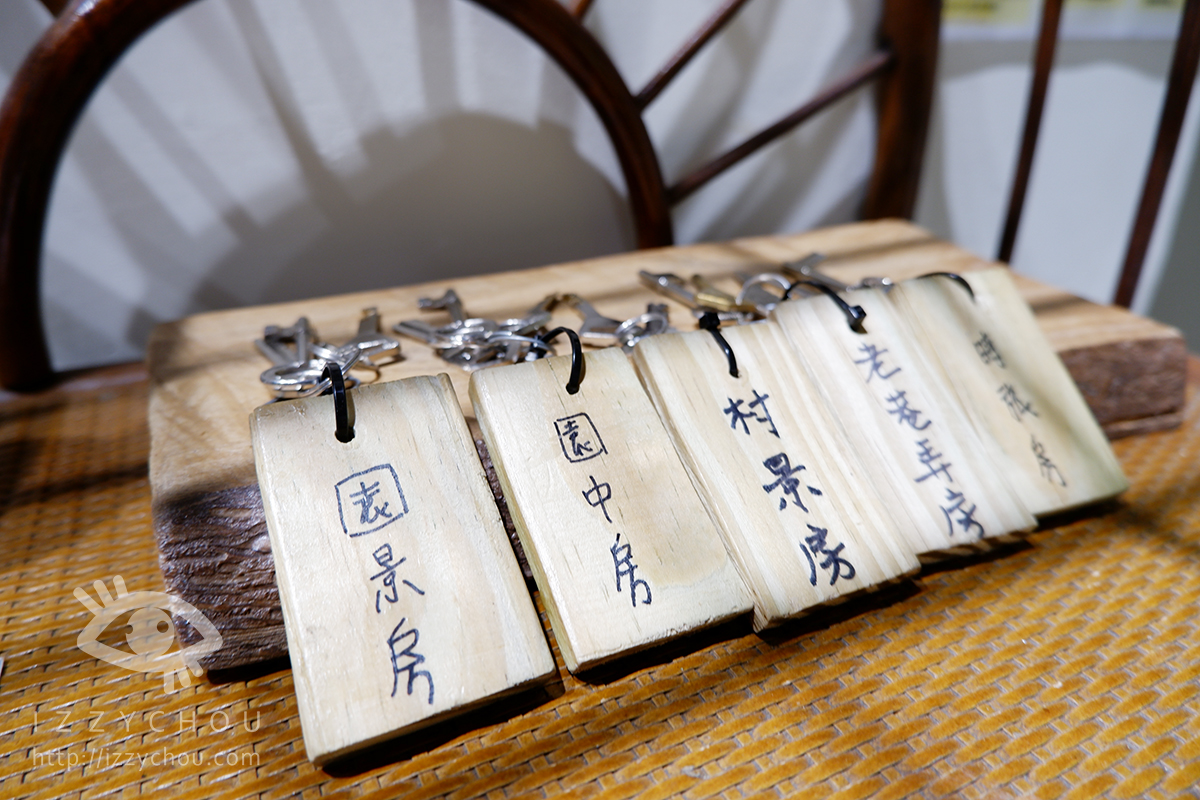 園景房
園中房
村景房
老巷弄房
IZZYCHOU
http://izzychou.com